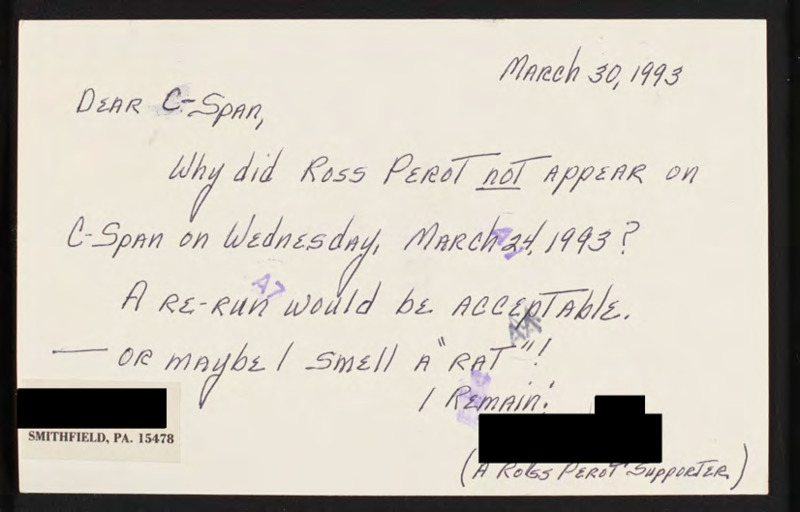 March 30, 1993
Dear C-Span,
Why did Ross Perot not appear on
C-Span on Wednesday, March 24, 1993?
A re-run would be acceptable.
— or maybe I smell a "rat"!
I Remain:
(A Ross Perot Supporter)
SMITHFIELD, PA. 15478
A7